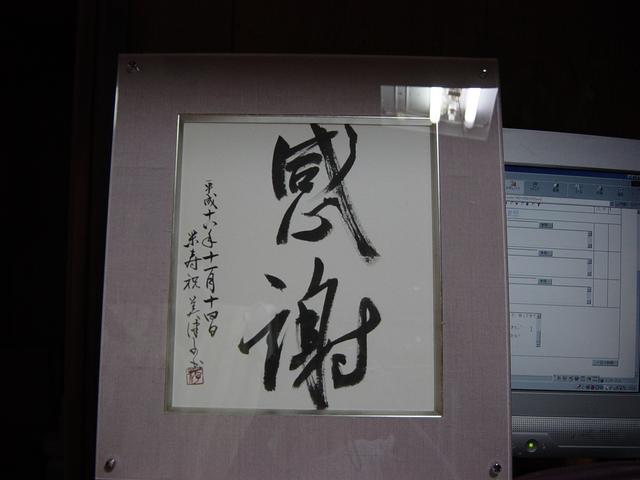 感謝
平成十六年十一月十四日
米寿祝